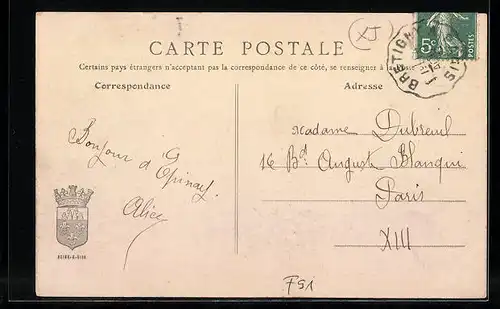 XJ
CARTE POSTALE
Certains pays étrangers n'acceptant pas la correspondance de ce côté, se renseigner à la
Correspondance
Adresse
5c
POSTES
BRETIGN
IS
Bonjour d'
Epinay.
Alice
Madame Dubreuil
16 Bd Auguste Blanqui
Paris
XIII
SEINE-&-OISE
F91